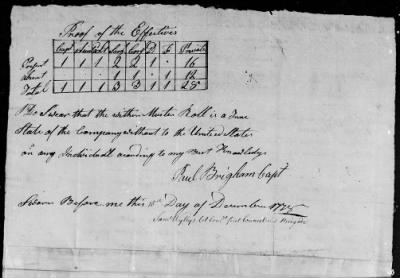 Proof of the Effectives
Capt Lt Serj Corp D F Private
Present 1 1 1 2 2 1 16
Absent 1 1 1 12
Total 1 1 1 3 3 1 1 28
I do Swear that the within Muster Roll is a True
State of the Company without to the United States
or any Individall acording to my Best Knowledge
Paul Brigham Capt
Sworn Before me this Day of December 1778
Saml Wyllys Col first Connecticut